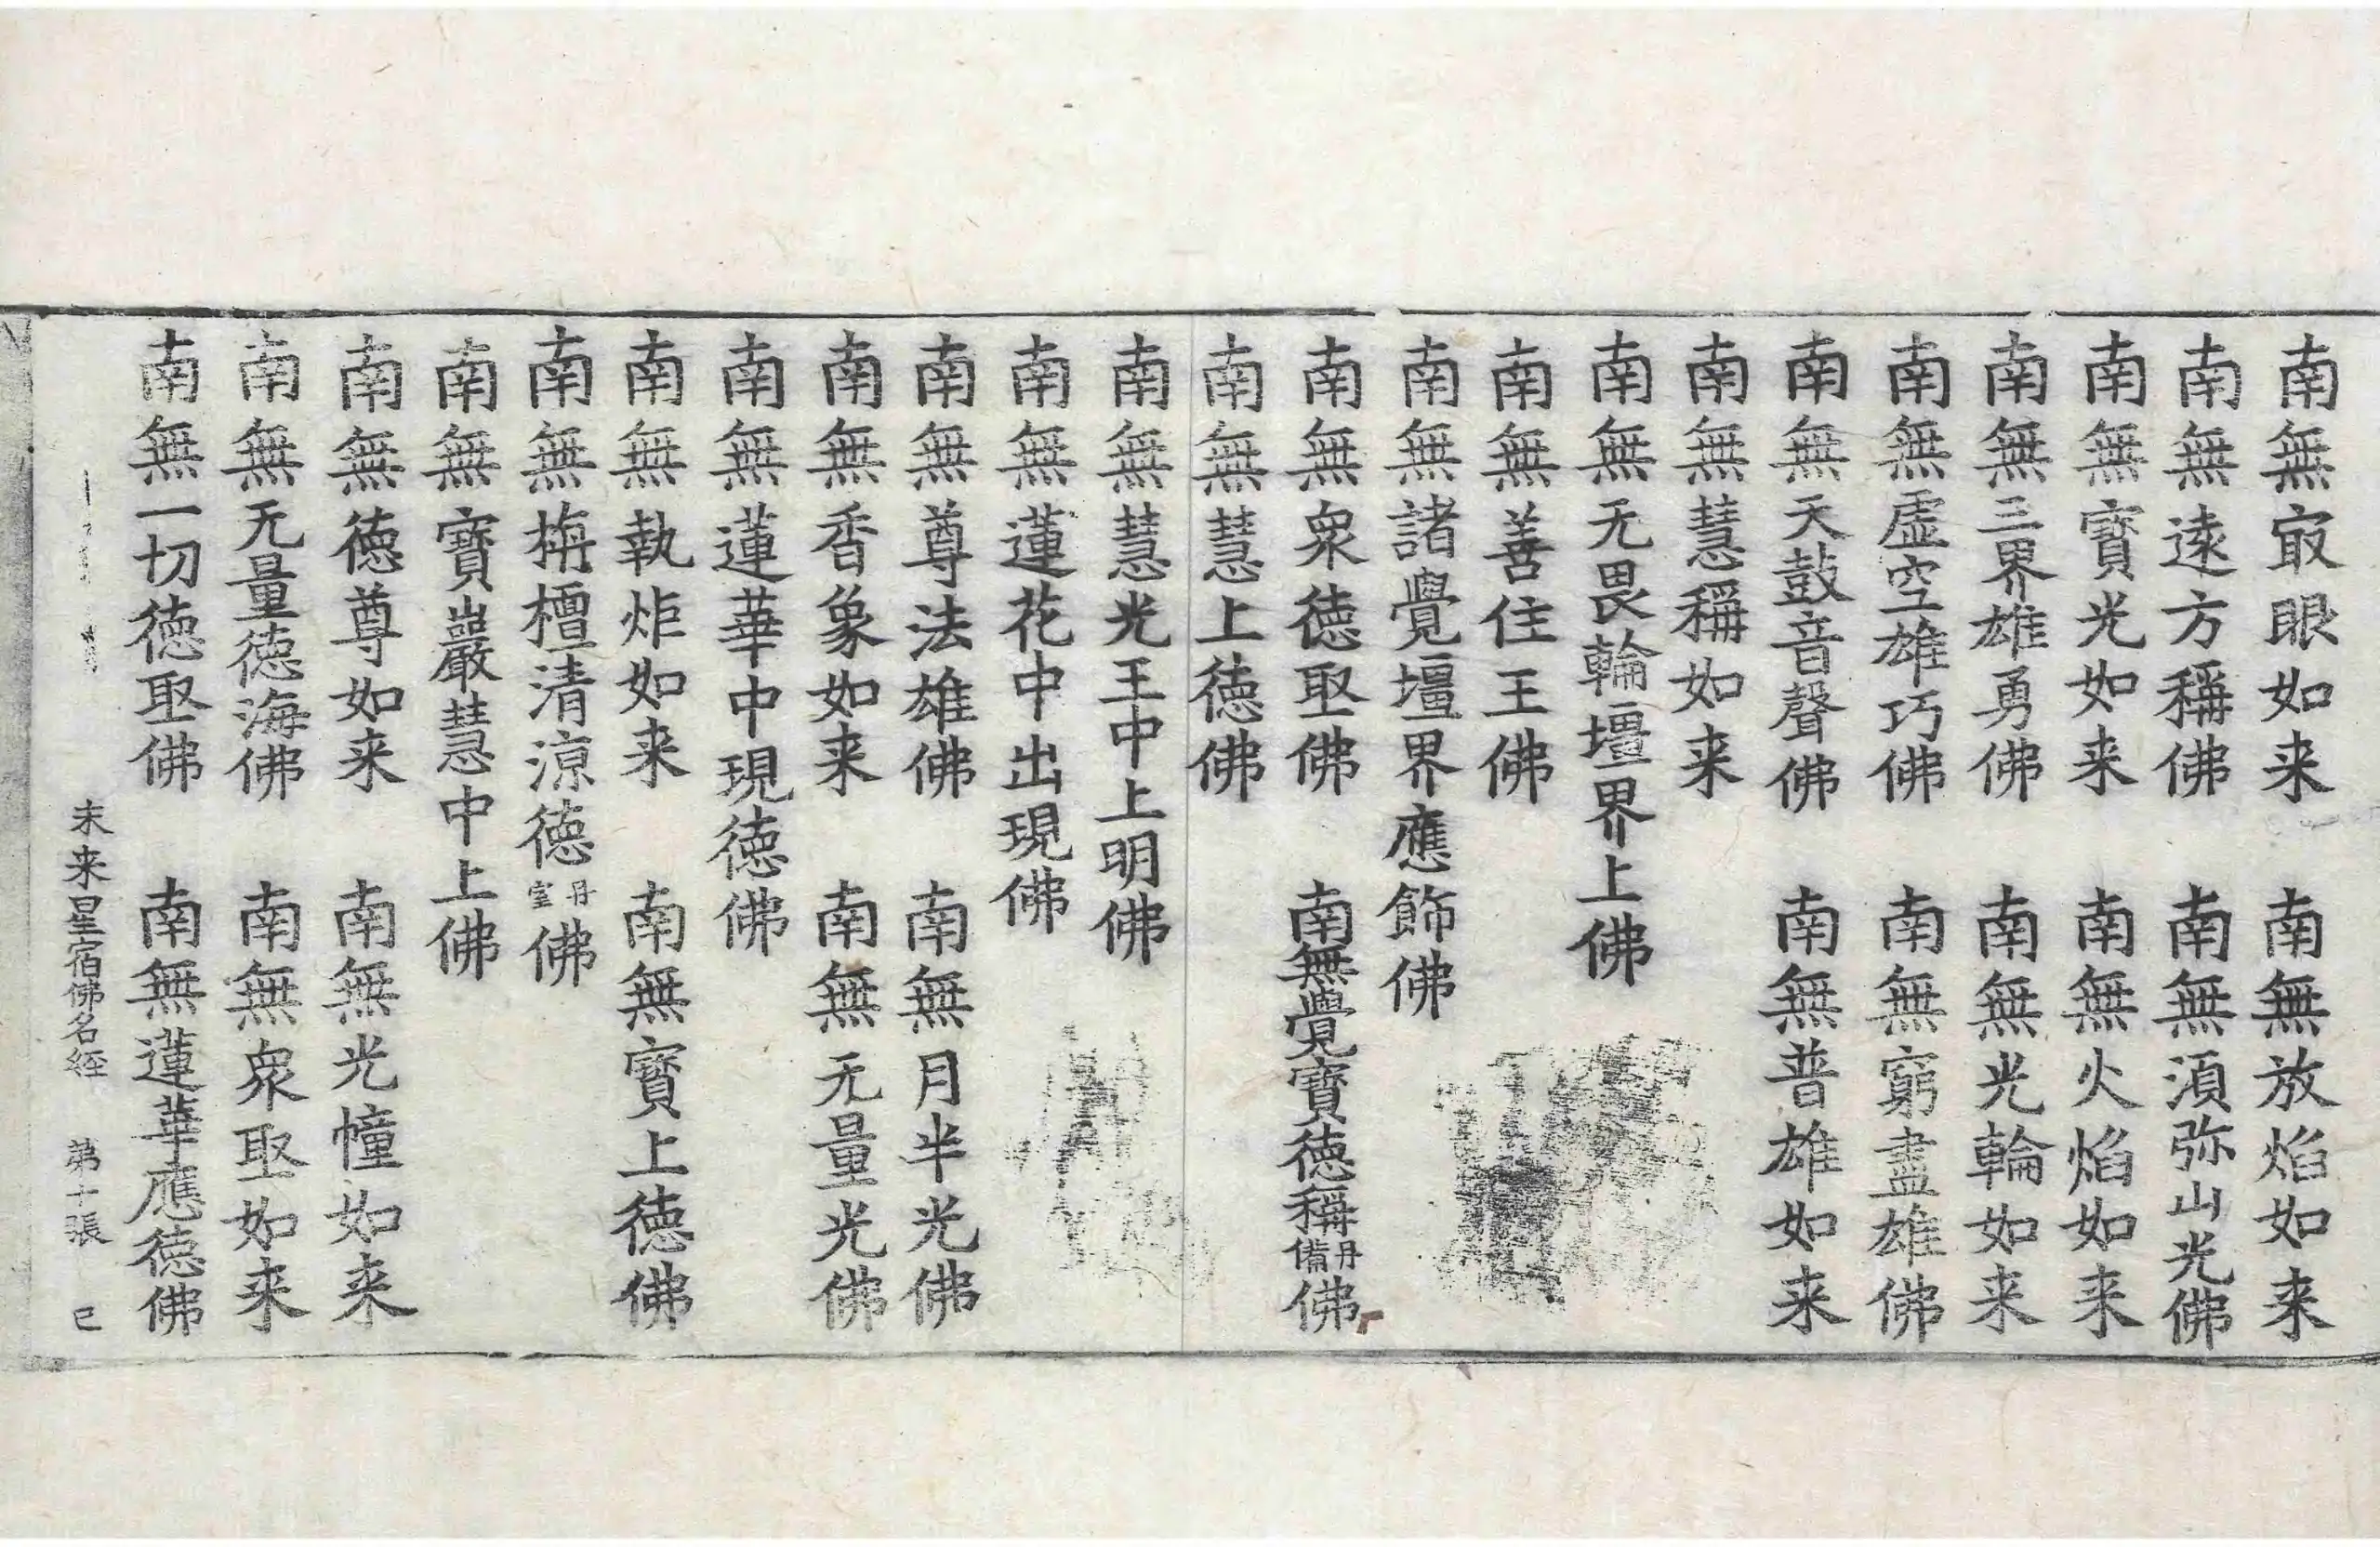 南無㝡眼如来 南無放焰如来
南無遠方稱佛 南無湏弥山光佛
南無寶光如来 南無火焰如来
南無三界雄勇佛 南無光輪如来
南無虛空雄巧佛 南無窮盡雄佛
南無天鼓音聲佛 南無普雄如来
南無慧稱如来
南無无畏輪壃界上佛
南無善住王佛
南無諸覺壃界應飾佛
南無衆徳聚佛 南無覺寶徳稱丹僃佛
南無慧上徳佛
南無慧光王中上明佛
南無蓮花中出現佛
南無尊法雄佛 南無月半光佛
南無香象如来 南無无量光佛
南無蓮華中現徳佛
南無執炬如来 南無寶上徳佛
南無栴檀清涼徳丹室佛
南無寶巖慧中上佛
南無徳尊如来 南無光幢如来
南無无量徳海佛 南無衆聚如来
南無一切徳聚佛 南無蓮華應徳佛
未来星宿佛名經 第十張 巳